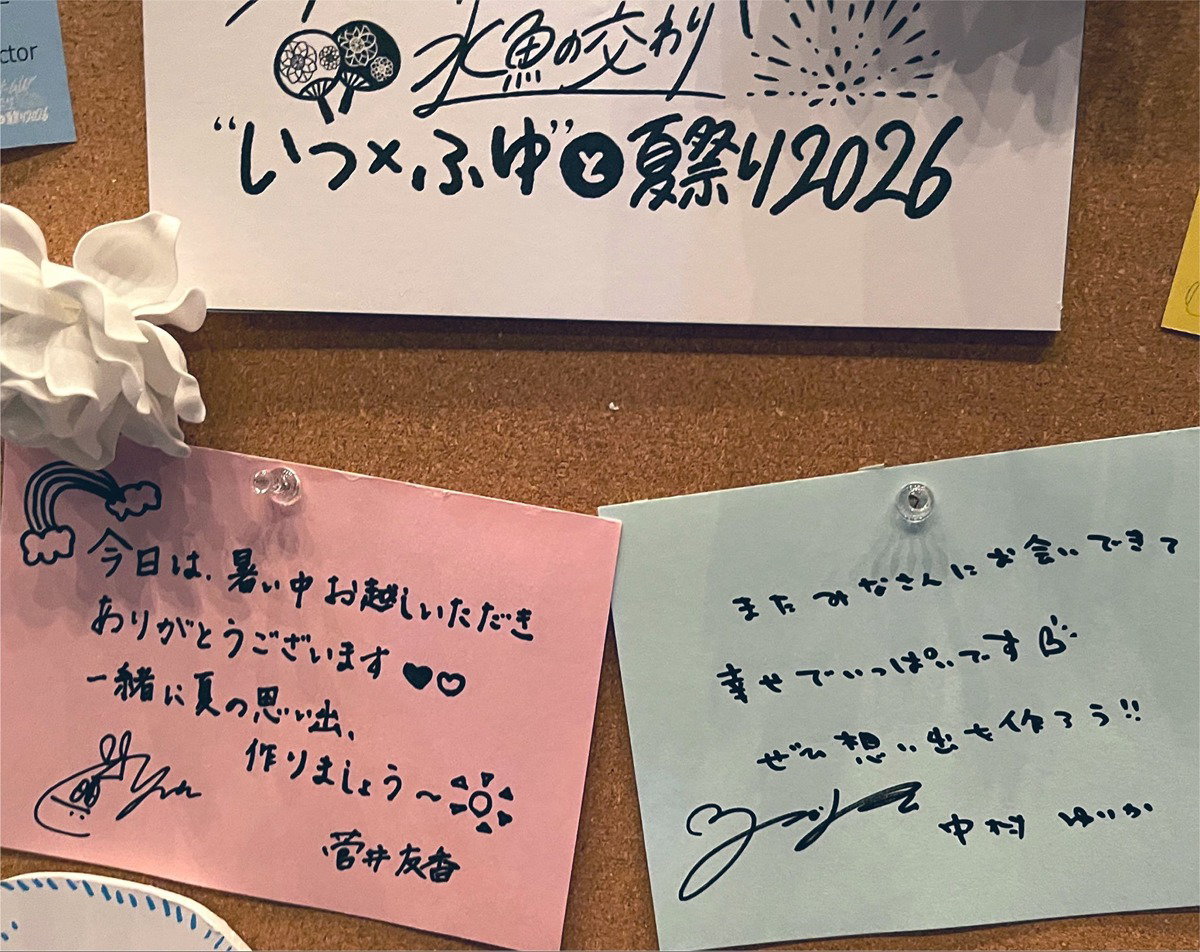 ctor
水魚の交わり
“いつ×ふゆ”と夏祭り2026
今日は、暑い中お越しいただき
ありがとうございます
一緒に夏の思い出、
作りましょう〜
菅井友香
またみなさんにお会いできて
幸せでいっぱいです
ぜひ想い出を作ろう!!
中村ゆいか